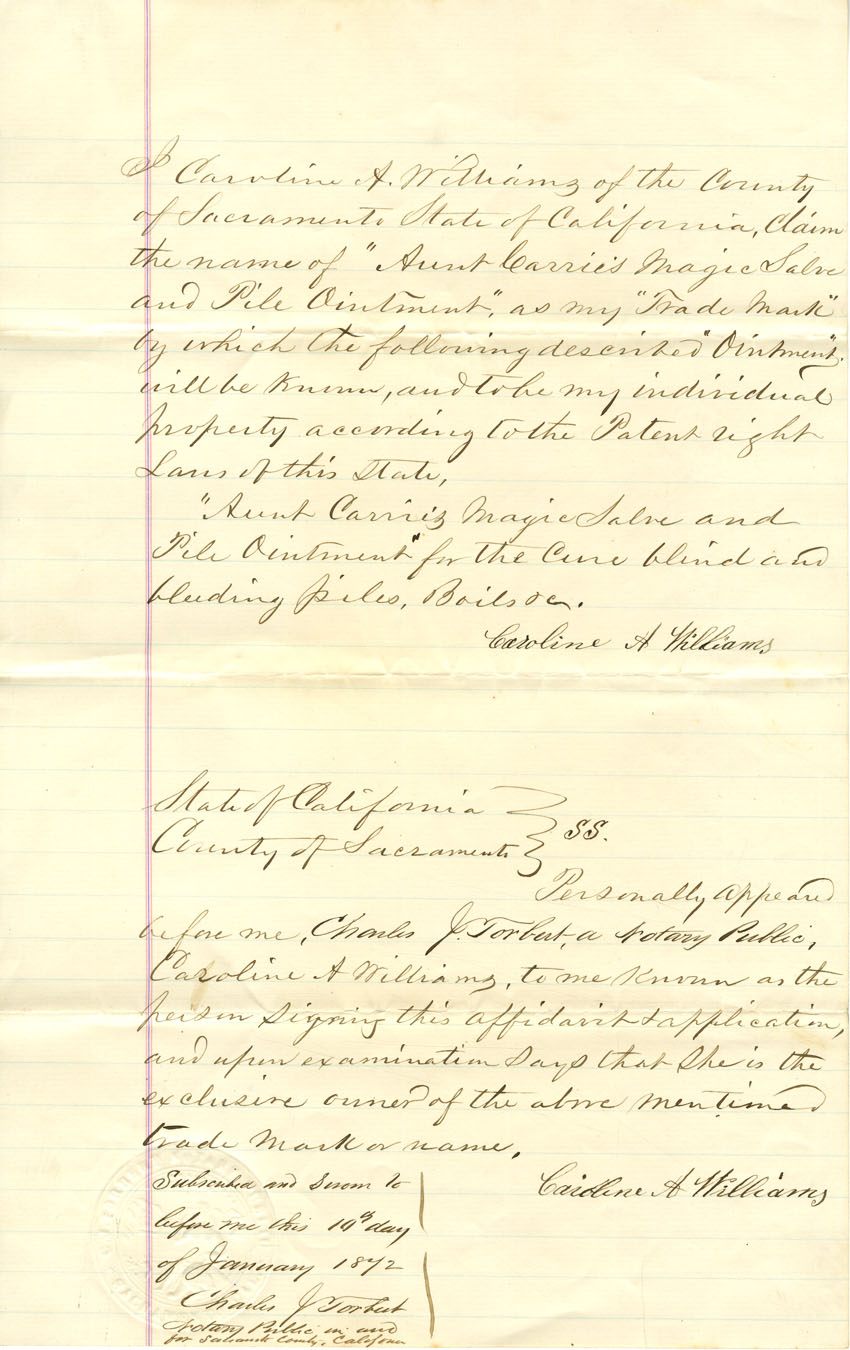 I Caroline A. Williams of the County
of Sacramento State of California, Claim
the name of "Aunt Carrie's Magic Salve
and Pile Ointment", as my "Trade Mark"
by which the following described "Ointment",
will be Known, and to be my individual
property according to the Patent right
Laws of this State,
"Aunt Carrie's Magic Salve and
Pile Ointment" for the Cure blind and
bleeding piles, Boils &c.
Caroline A Williams
State of California
County of Sacramento } SS.
Personally appeared
before me, Charles J. Torbert, a Notary Public,
Caroline A Williams, to me Known as the
person signing this affidavit & application,
and upon examination Says that She is the
exclusive owner of the above mentioned
trade Mark or name.
Caroline A Williams
Subscribed and Sworn to
before me this day
of January 1872
Charles J Torbert
Notary Public in and
for Sacramento County, California